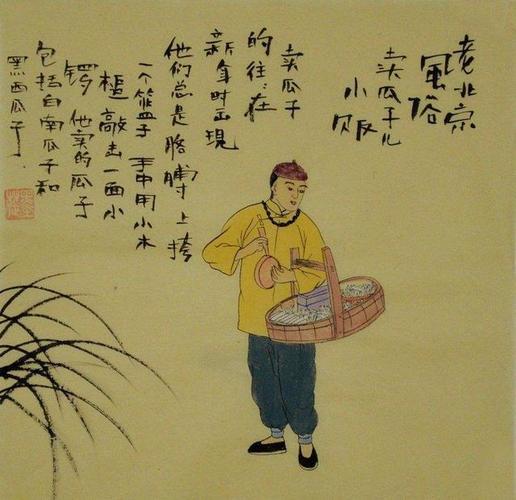 老北京
風俗
卖瓜子儿
小贩
卖瓜子
的往:在
新年时出现
他们总是胳膊上挎
一个篮子手中用小木
槌敲击一面小
锣他卖的瓜子
包括白南瓜子和
黑西瓜子.